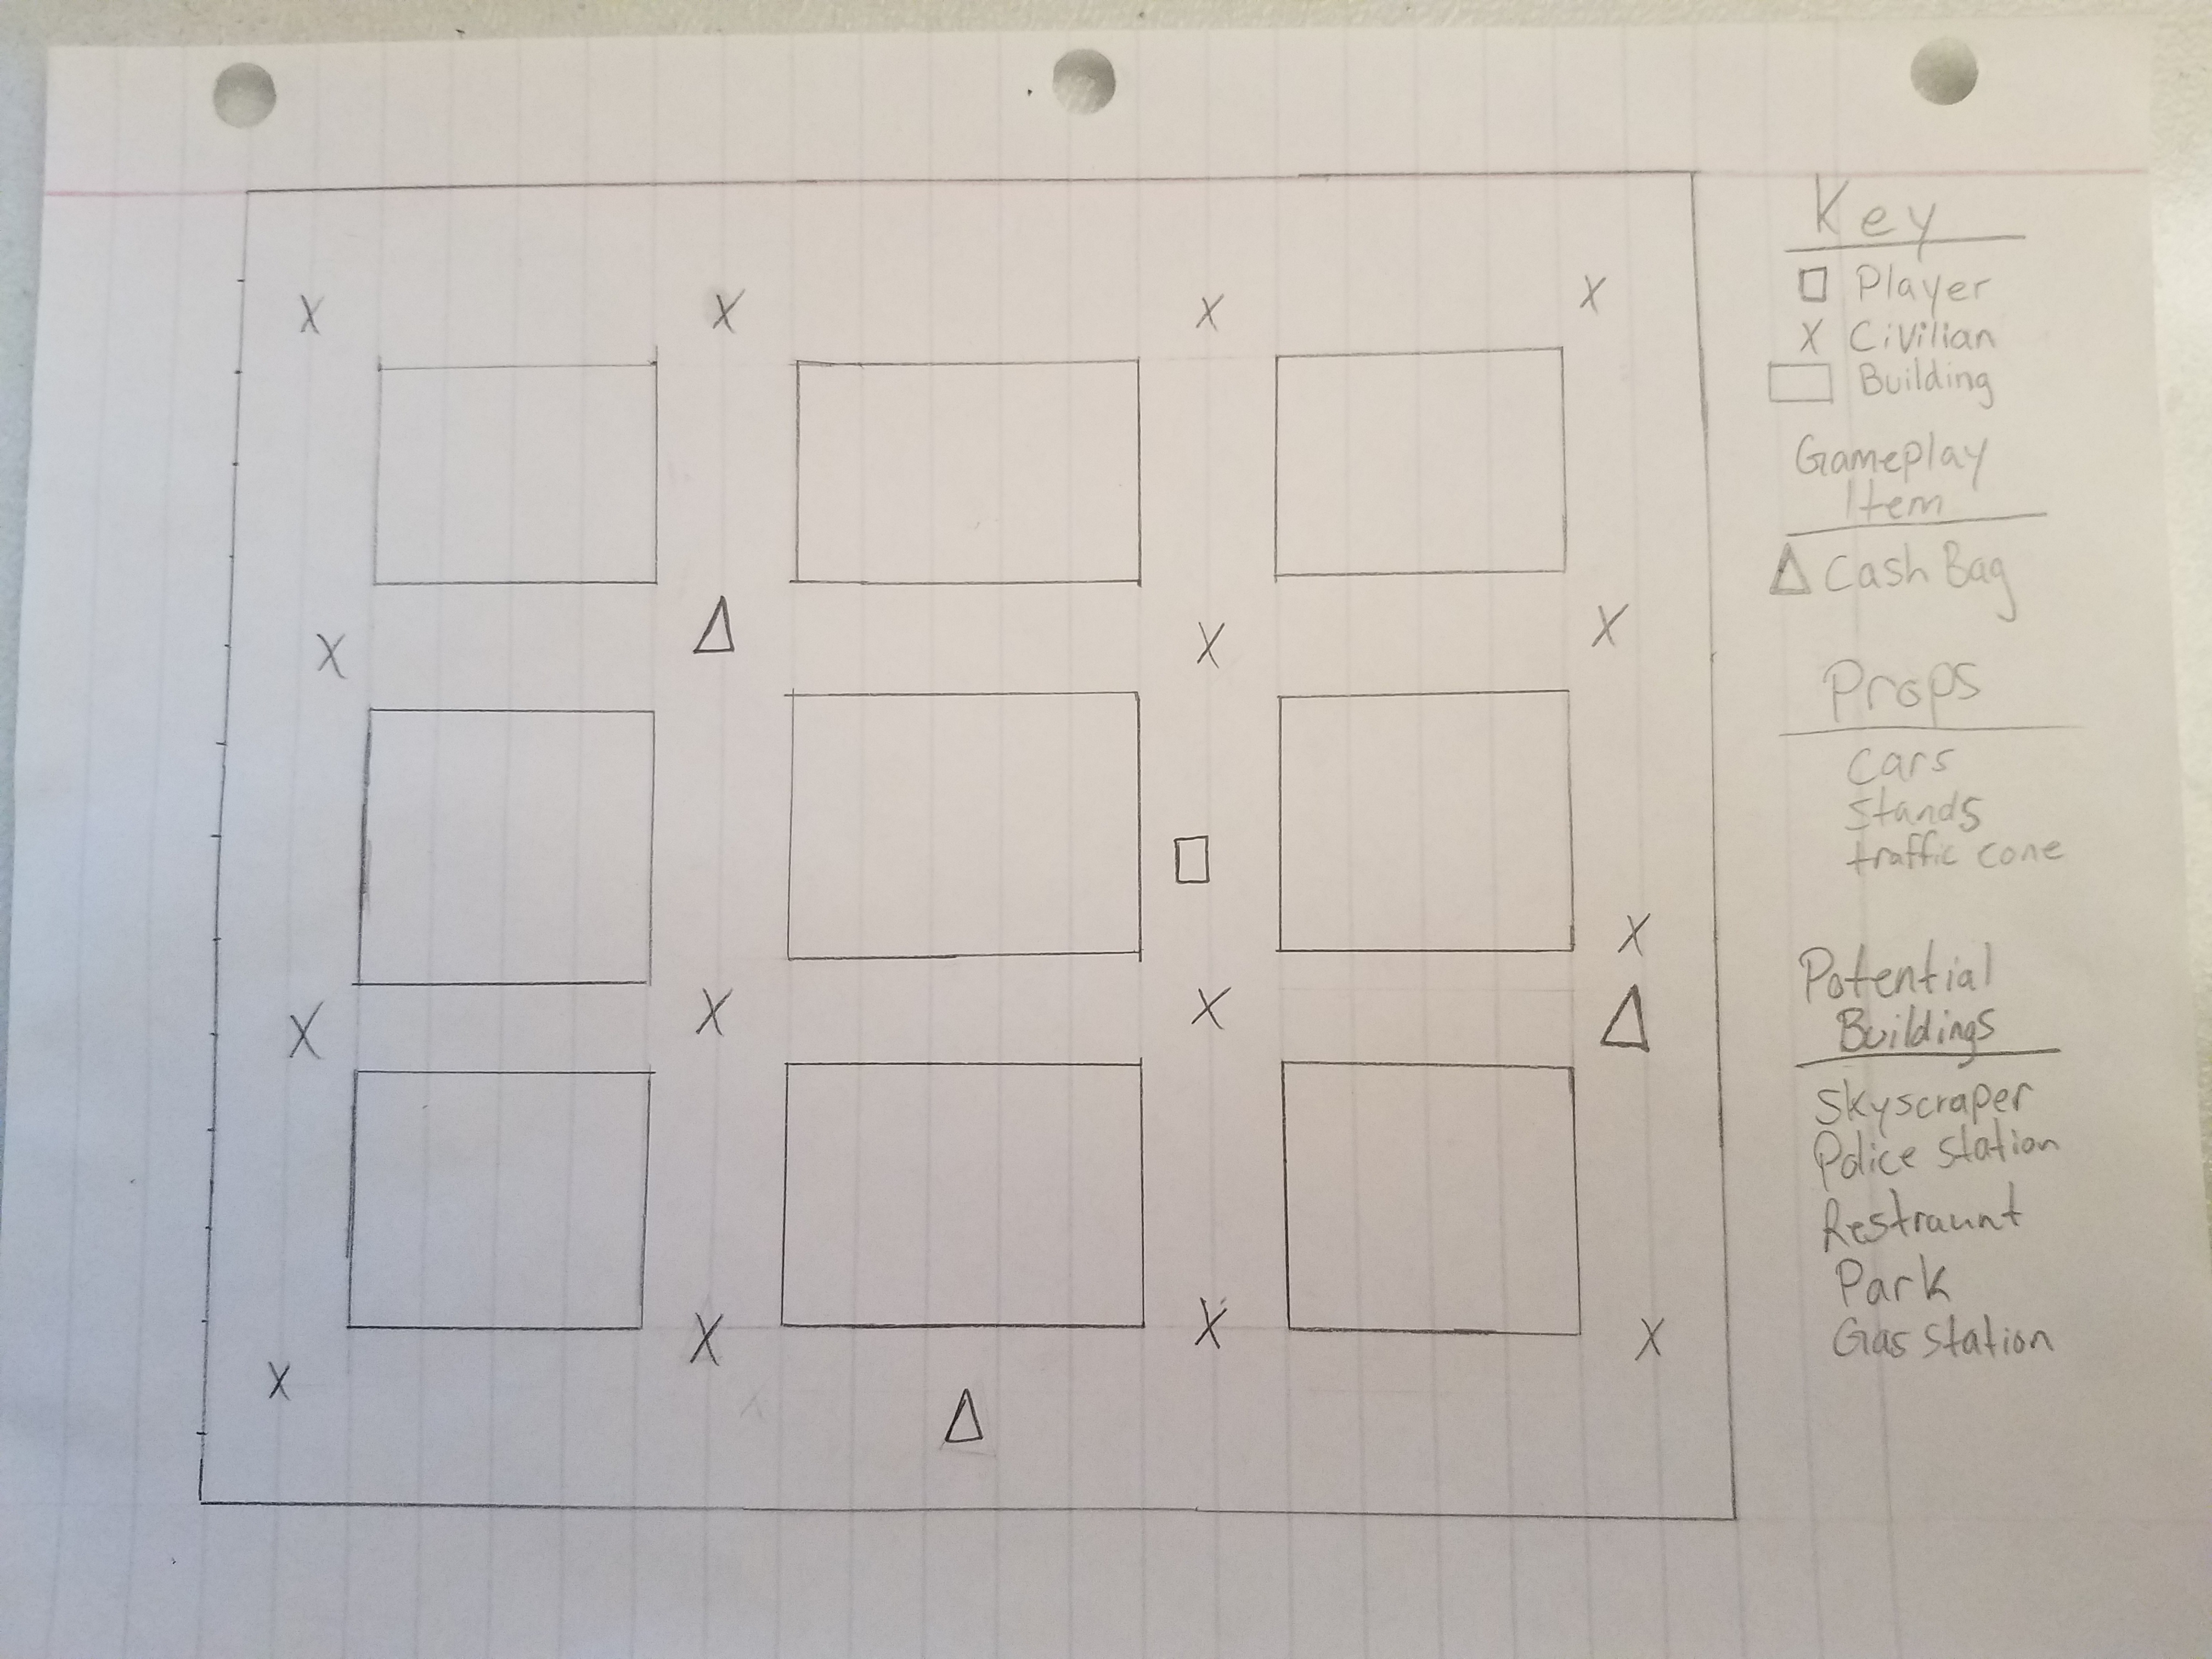 Key
Player
X Civilian
Building
Gameplay
Item
Cash Bag
Props
Cars
Stands
traffic cone
Potential
Buildings
Skyscraper
Police station
Restraunt
Park
Gas station
X X X X
X X X
X
X X X
X X X X